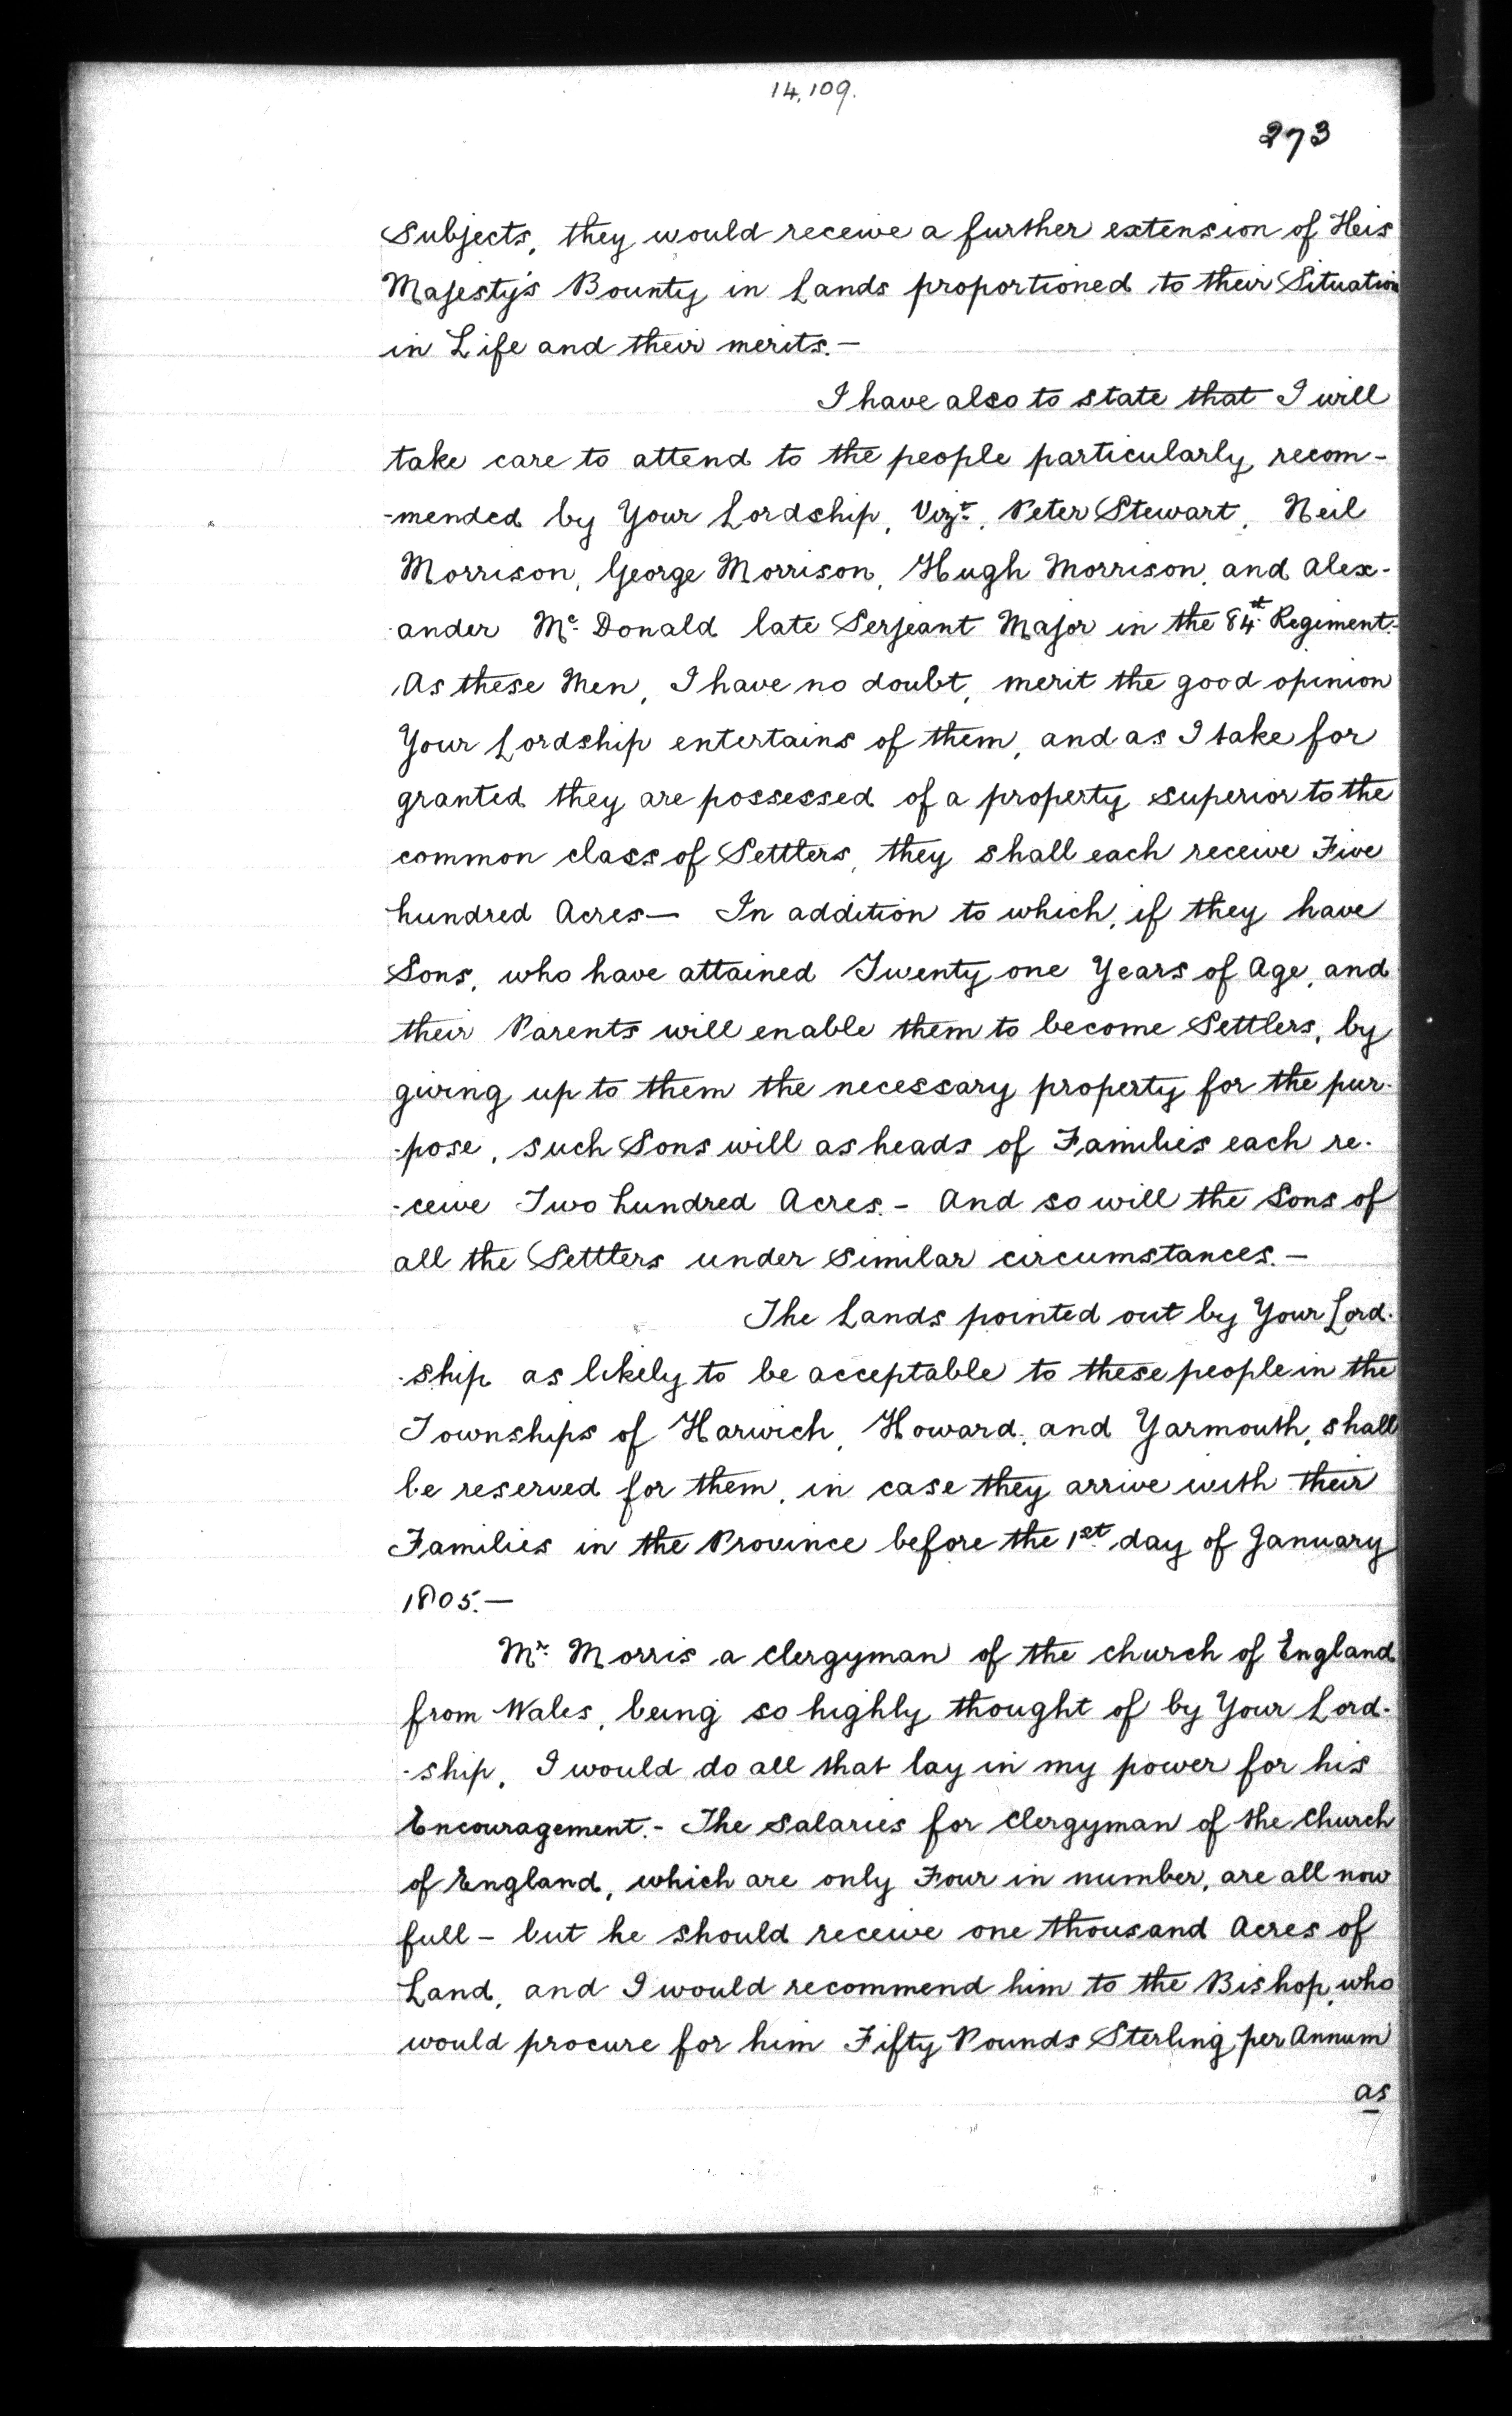 14,109.
273
Subjects, they would receive a further extension of Heis
Majesty's Bounty in Lands proportioned to their Situation
in Life and their merits.—
I have also to state that I will
take care to attend to the people particularly recom-
-mended by Your Lordship, Vizt., Peter Stewart, Neil
Morrison, George Morrison, Hugh Morrison, and Alex-
-ander Mc. Donald late Serjeant Major in the 84st Regiment.
As these Men, I have no doubt, merit the good opinion
Your Lordship entertains of them, and as I take for
granted they are possessed of a property superior to the
common class of Settlers, they shall each receive Five
hundred Acres— In addition to which, if they have
Sons, who have attained Twenty one Years of Age, and
their Parents will enable them to become Settlers, by
giving up to them the necessary property for the pur-
-pose, such Sons will as heads of Families each re-
-ceive Two hundred Acres.- And so will the Sons of
all the Settlers under similar circumstances.—
The Lands pointed out by Your Lord-
-ship as likely to be acceptable to these people in the
Townships of Harwich, Howard, and Yarmouth, shall
be reserved for them, in case they arrive with their
Families in the Province before the 1st day of January
1805.—
Mr. Morris a Clergyman of the church of England
from Wales, being so highly thought of by Your Lord-
-ship, I would do all that lay in my power for his
Encouragement.- The Salaries for Clergyman of the Church
of England, which are only Four in number, are all now
full – but he should receive one thousand Acres of
Land, and I would recommend him to the Bishop, who
would procure for him Fifty Pounds Sterling per Annum
as